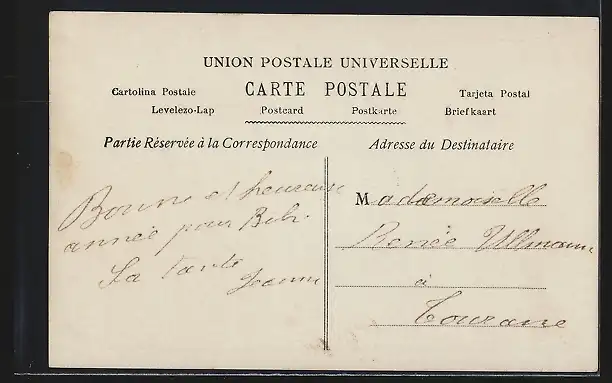 UNION POSTALE UNIVERSELLE
Cartolina Postale CARTE POSTALE Tarjeta Postal
Levelezo-Lap Postcard Postkarte Briefkaart
Partie Réservée à la Correspondance
Bonne et heureuse
année pour Bébé.
Sa tante
Jeanne
Adresse du Destinataire
Mademoiselle
Renée Ullmann
à
Tourane